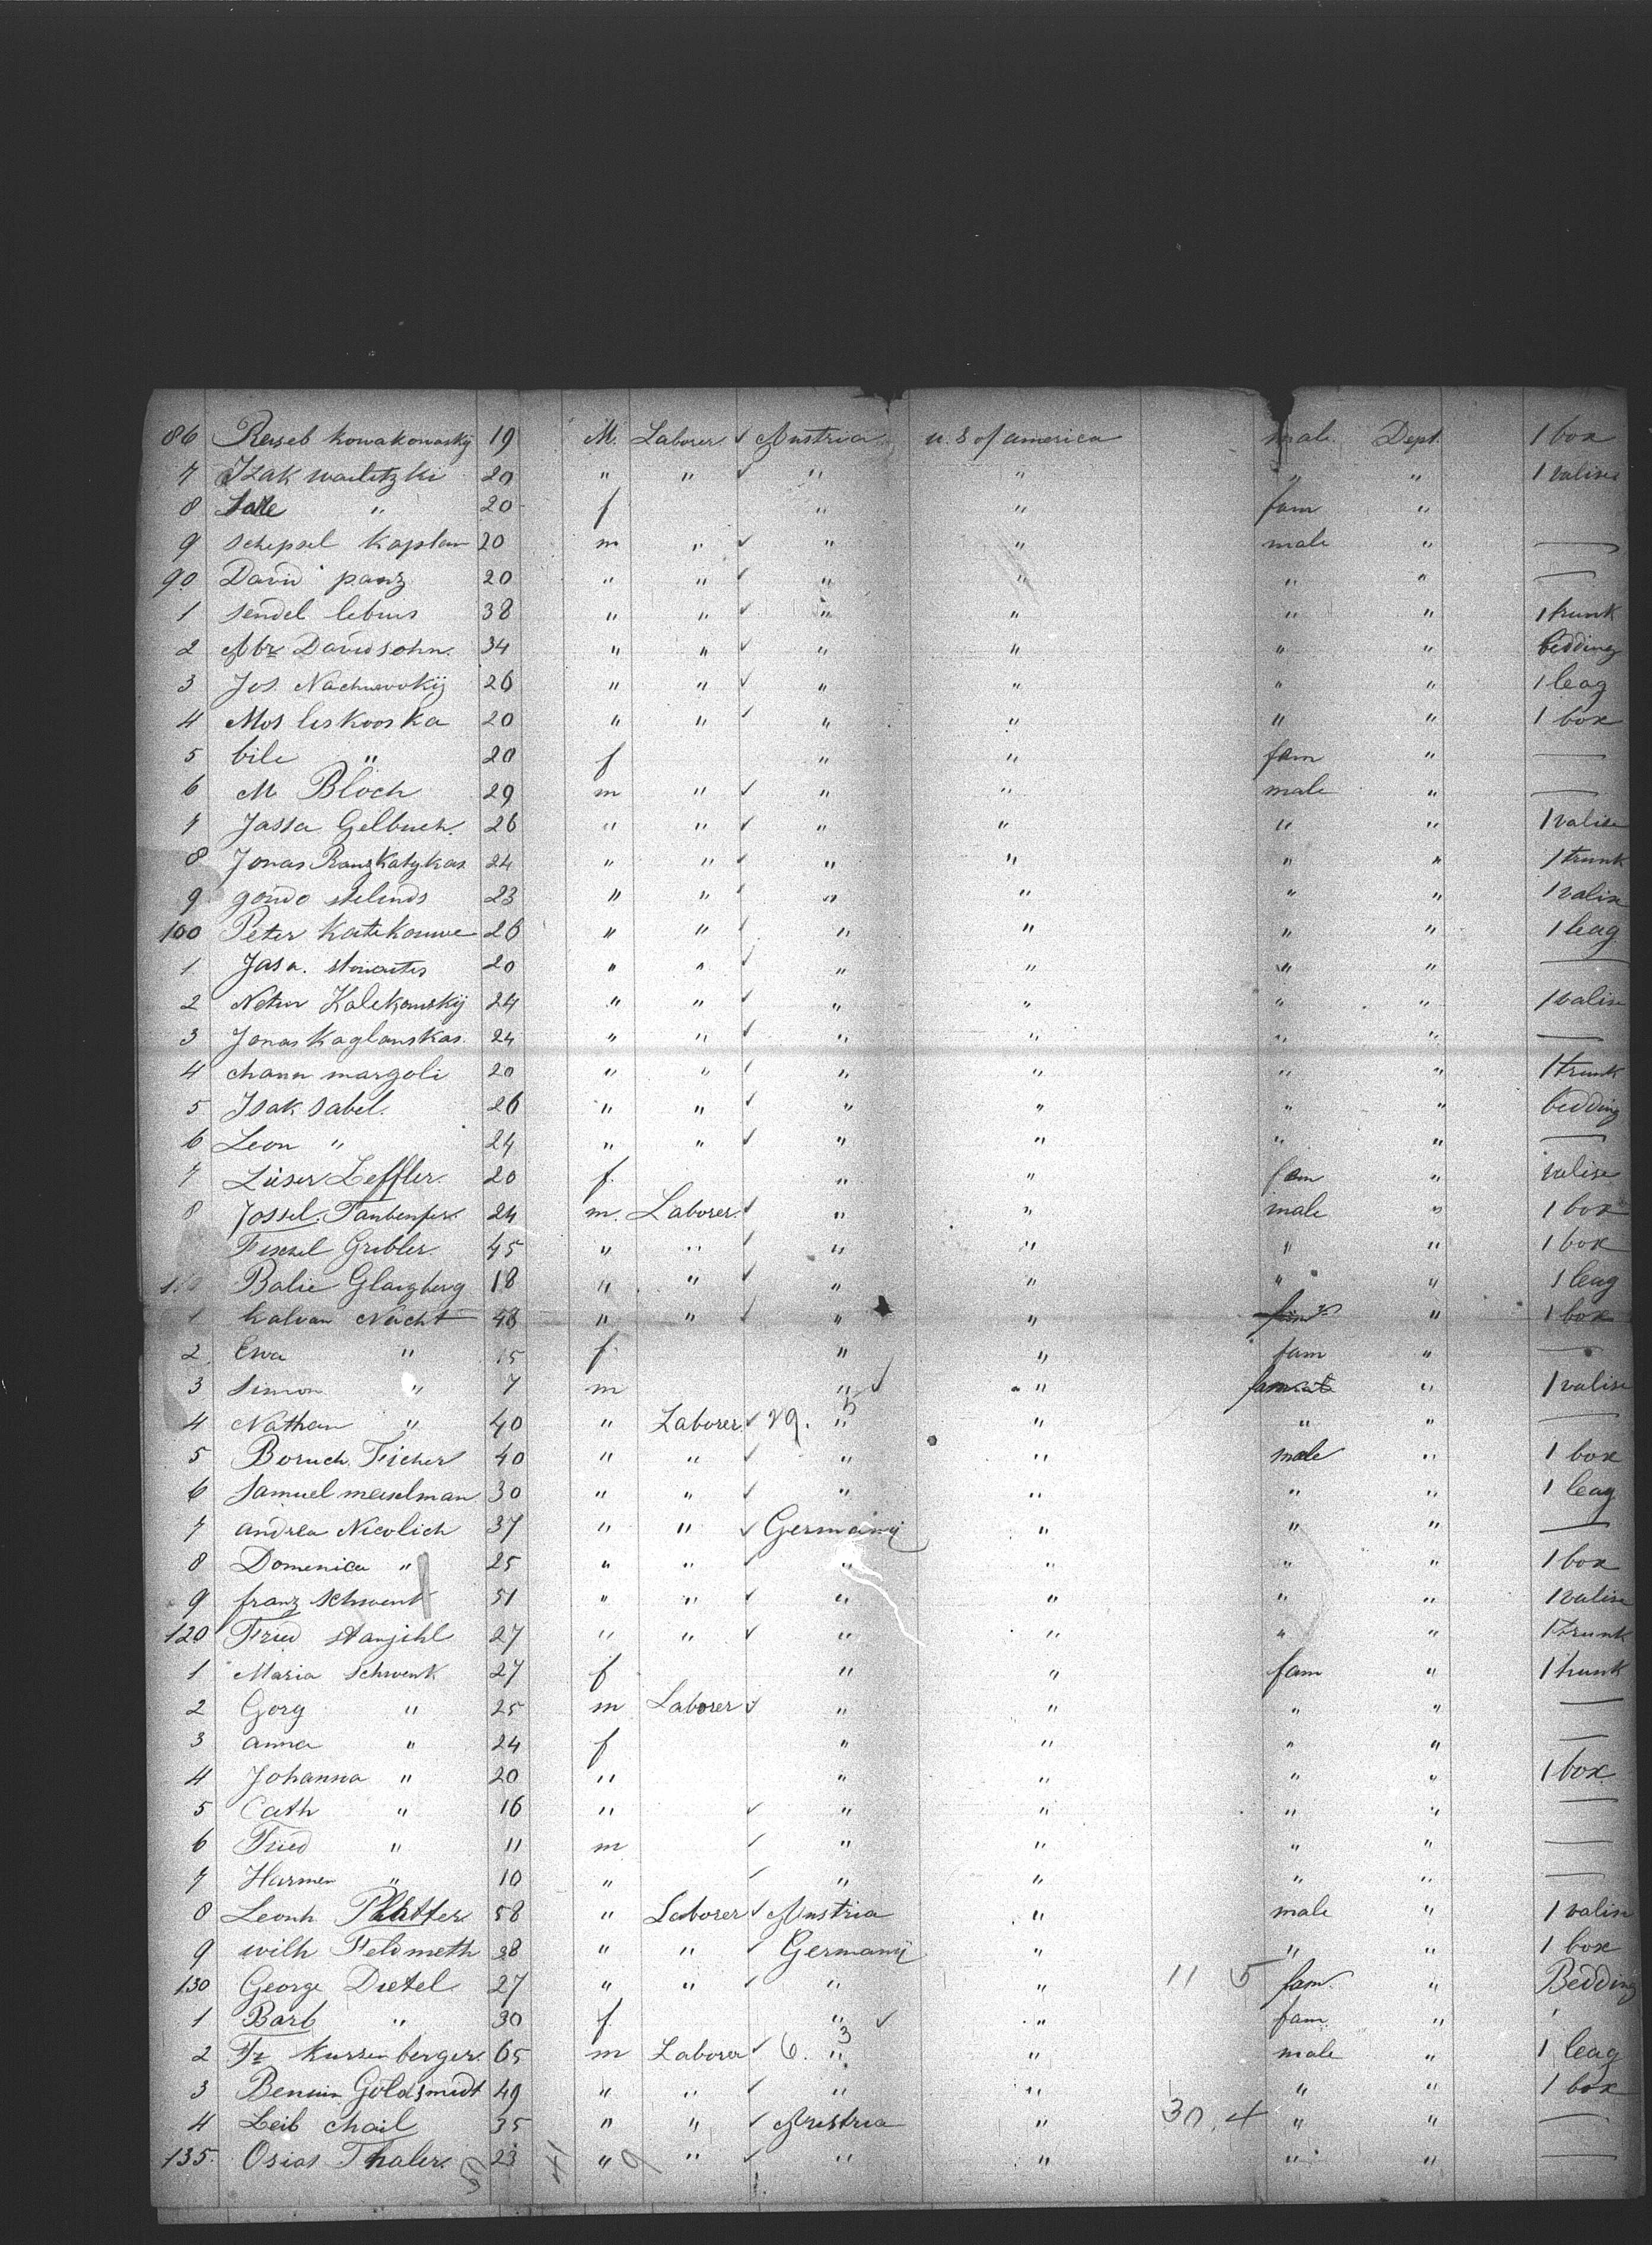 86 Raseb Kowakowasky 19 M. Laborer ✓ Austria u. S of america male Dept. 1 box
7 Izak wailitzki 20 " " ✓ " " " " 1 valise
8 " 20 f " " fam "
9 schepsel Kaplan 20 m " ✓ " " male " —
90 David panz 20 " " ✓ " " " " —
1 sendel lebus 38 " " ✓ " " " " 1 trunk
2 Abr Davidsohn. 34 " " ✓ " " " " bedding
3 Jos. Nachnevokij 26 " " ✓ " " " " 1 leag
4 Mos liskooska 20 " " ✓ " " " " 1 box
5 bile " 20 f " " fam " —
6 M Bloch 29 m " ✓ " " male " —
7 Jassa Gelbuch. 26 " " ✓ " " " " 1 valise
8 Jonas 24 " " ✓ " " " " 1 trunk
9 gondo stelinds 23 " " ✓ " " " " 1 valise
100 Peter Katekouwe 26 " " ✓ " " " " 1 leag
1 Jasa. 20 " " ✓ " " " " —
2 Kalekowskij 24 " " ✓ " " " " 1 valise
3 Jonas Kaglanskas. 24 " " ✓ " " " " —
4 chann margoli 20 " " ✓ " " " " 1 trunk
5 Isak Sabel. 26 " " ✓ " " " " bedding
6 Leon " 24 " " ✓ " " " " —
7 Liiser Leffler. 20 f. " " fam " valise
8 Jossel. Taubenfer. 24 m. Laborer. ✓ " " male " 1 box
Fiszel Gribler. 45 " " ✓ " " " " 1 box
Balie Glaszberg 18 " " ✓ " " " " 1 leag
1 Kalvan Nacht 48 " " ✓ " " " 1 box
2 Ewa " 15 f " " fam " —
3 Simon " 7 m " ✓ " " 1 valise
4 Nathan " 40 " Laborer. ✓ 29. 5 " " " " —
5 Boruch. Ficher 40 " " ✓ " " male " 1 box
6 Samuel meiselman 30 " " ✓ " " " " 1 leag
7 andrea Nicolich 37 " " ✓ Germany " " " —
8 Domenica " 25 " " ✓ " " " " 1 box
9 franz Schwenk 51 " " ✓ " " " " 1 valise
120 Fried stanjihl 27 " " ✓ " " " " 1 trunk
1 Maria Schwenk 27 f " " fam " 1 trunk
2 Gorg " 25 m Laborer ✓ " " " " —
3 anna " 24 f " " " " —
4 Johanna " 20 " " " " " 1 box
5 Cath " 16 " ✓ " " " " —
6 Fried " 11 m ✓ " " " " —
7 Harmen " 10 " ✓ " " " " —
8 Leonh Platter. 58 " Laborer ✓ Austria " male " 1 valise
9 wilh Feldmeth 38 " " ✓ Germany " " " 1 box
130 George Dietel 27 " " ✓ " " 11 5 fam. " Bedding
1 Barb " 30 f " ✓ " fam. " "
2 Fr Kurzenberger. 65 m Laborer ✓ 6. 3 " " male " 1 leag
3 Goldsmidt 49 " " ✓ " " " " 1 box
4 Leib chail 35 " " ✓ Austria " 30. 4 " " —
135. Osias Thaler. 23 " " ✓ " " " " —